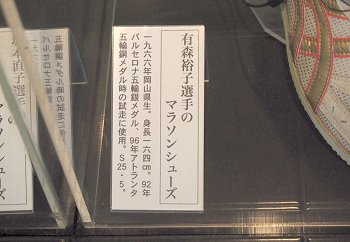 有森裕子選手の
マラソンシューズ
一九六六年岡山県生。身長一六四㎝。92年
バルセロナ五輪銀メダル、96年アトランタ
五輪銅メダル時の試走に使用。S25・5。
直子選手の
ンシューズ